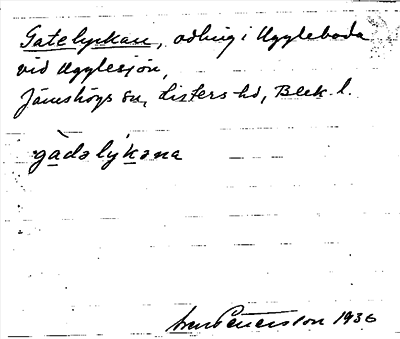 Gatelyckan, odling i Uggleboda
vid Ugglesjön,
Jämshögs sn, Listers hd, Blek. l.
gàdəlýkəna
1936